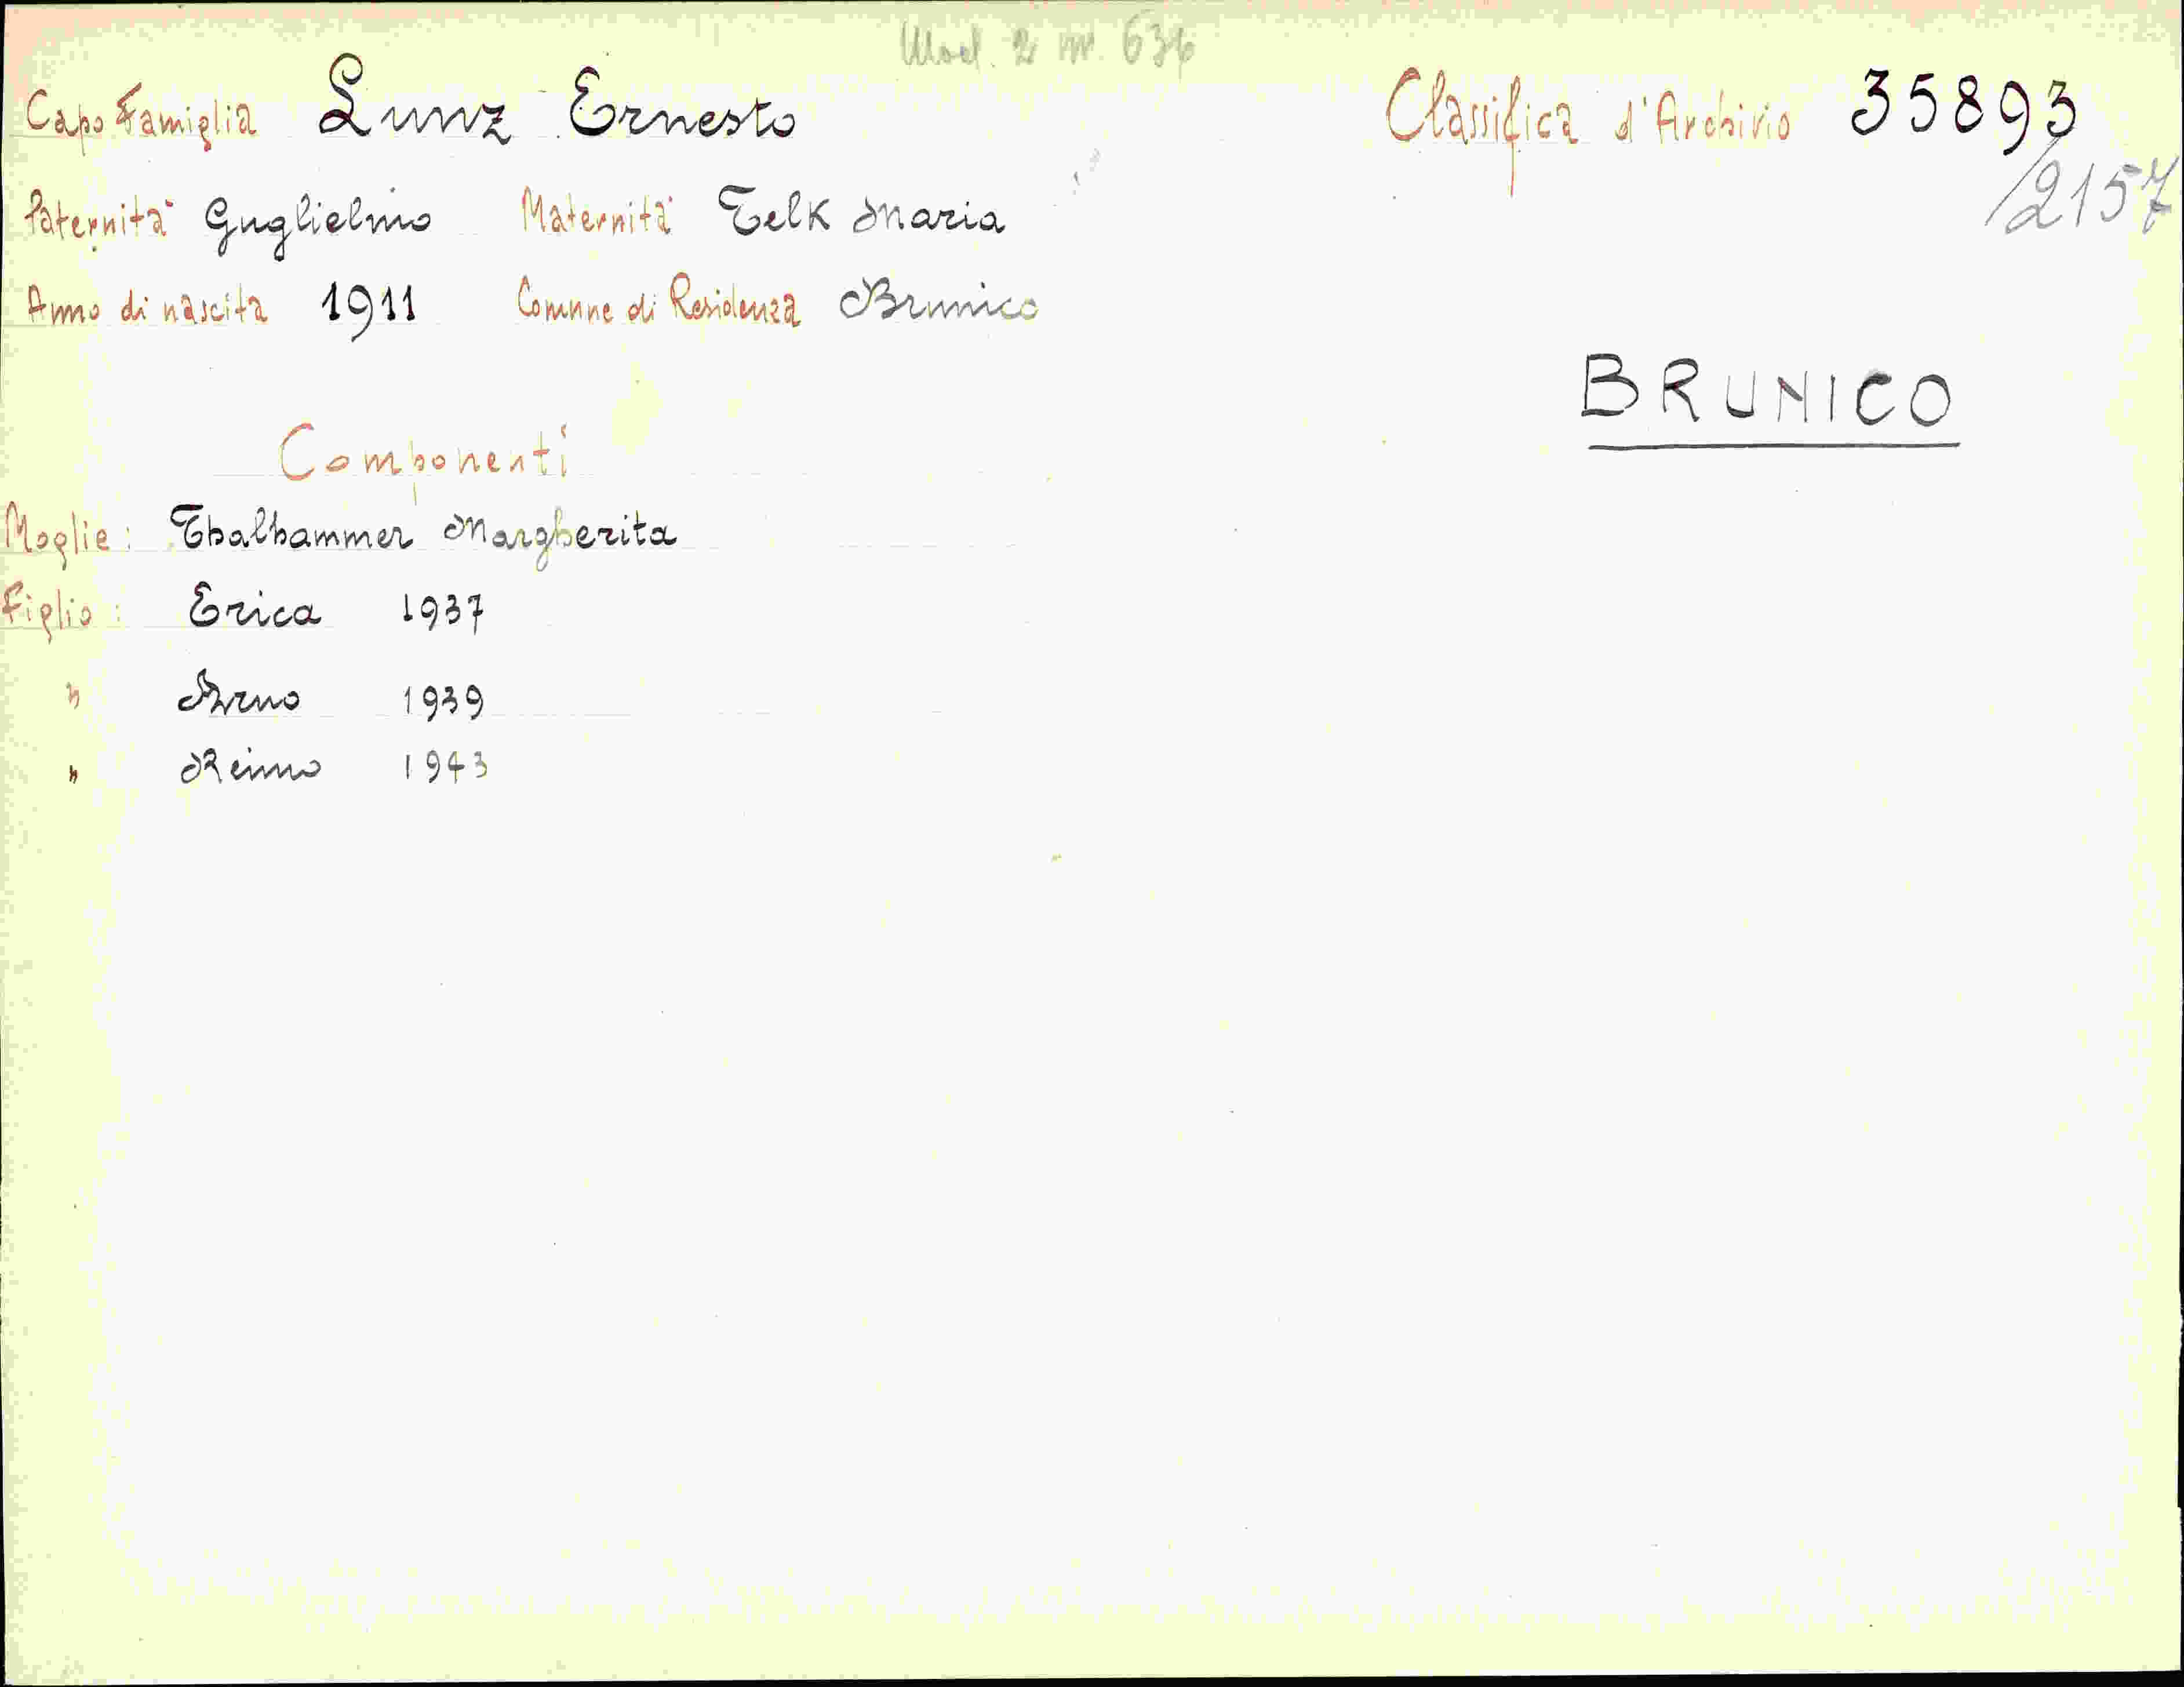 Mod. 2 nr. 636
Capo Famiglia Lunz Ernesto Classifica d'Archivio 35893
/2157
Paternità Guglielmo Maternità Telk Maria
Anno di nascita 1911 Comune di Residenza Brunico
BRUNICO
Componenti
Moglie: Thalhammer Margherita
Figlio: Erica 1937
" Arno 1939
" Reimo 1943